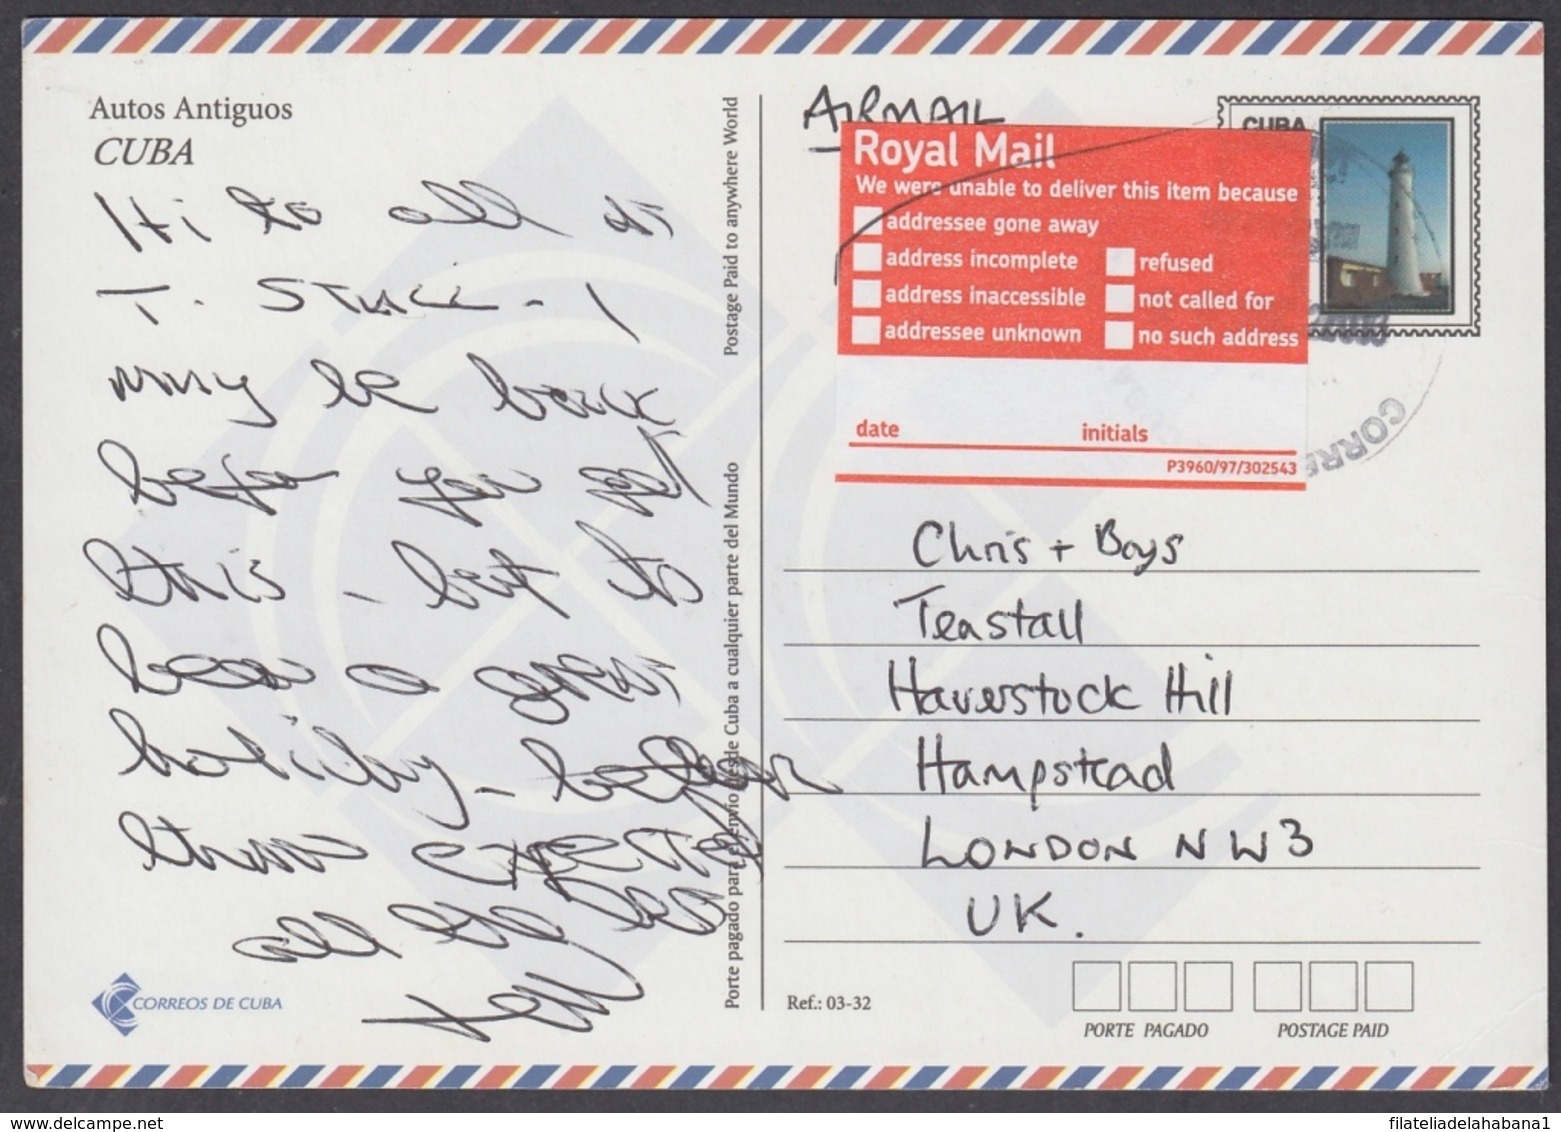 Autos Antiguos
CUBA
Hi to all at
T. STALL - I
may be back
before you get
this - but to
been a great
holiday - better
than expected
all the best
Postage Paid to anywhere World
Porte pagado para el envío desde Cuba a cualquier parte del Mundo
CORREOS DE CUBA
AIRMAIL
CUBA
Royal Mail
We were unable to deliver this item because
addressee gone away
address incomplete
refused
address inaccessible
not called for
addressee unknown
no such address
date
initials
P3960/97/302543
CORRE
Chris + Boys
Teastall
Haverstock Hill
Hampstead
LONDON NW3
UK.
Ref.: 03-32
PORTE PAGADO
POSTAGE PAID
filateliadelahabana1